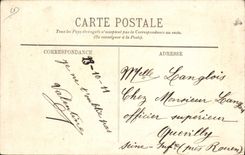 CARTE POSTALE
Tous les Pays étrangers n'acceptent pas la Correspondance au recto
(Se renseigner à la Poste)
CORRESPONDANCE
ADRESSE
23-10-11
je ne t'oublie pas
Valentine
Melle Langlois
Chez Monsieur Langlois
officier supérieur
Quevilly
Seine-Infre (près Rouen)